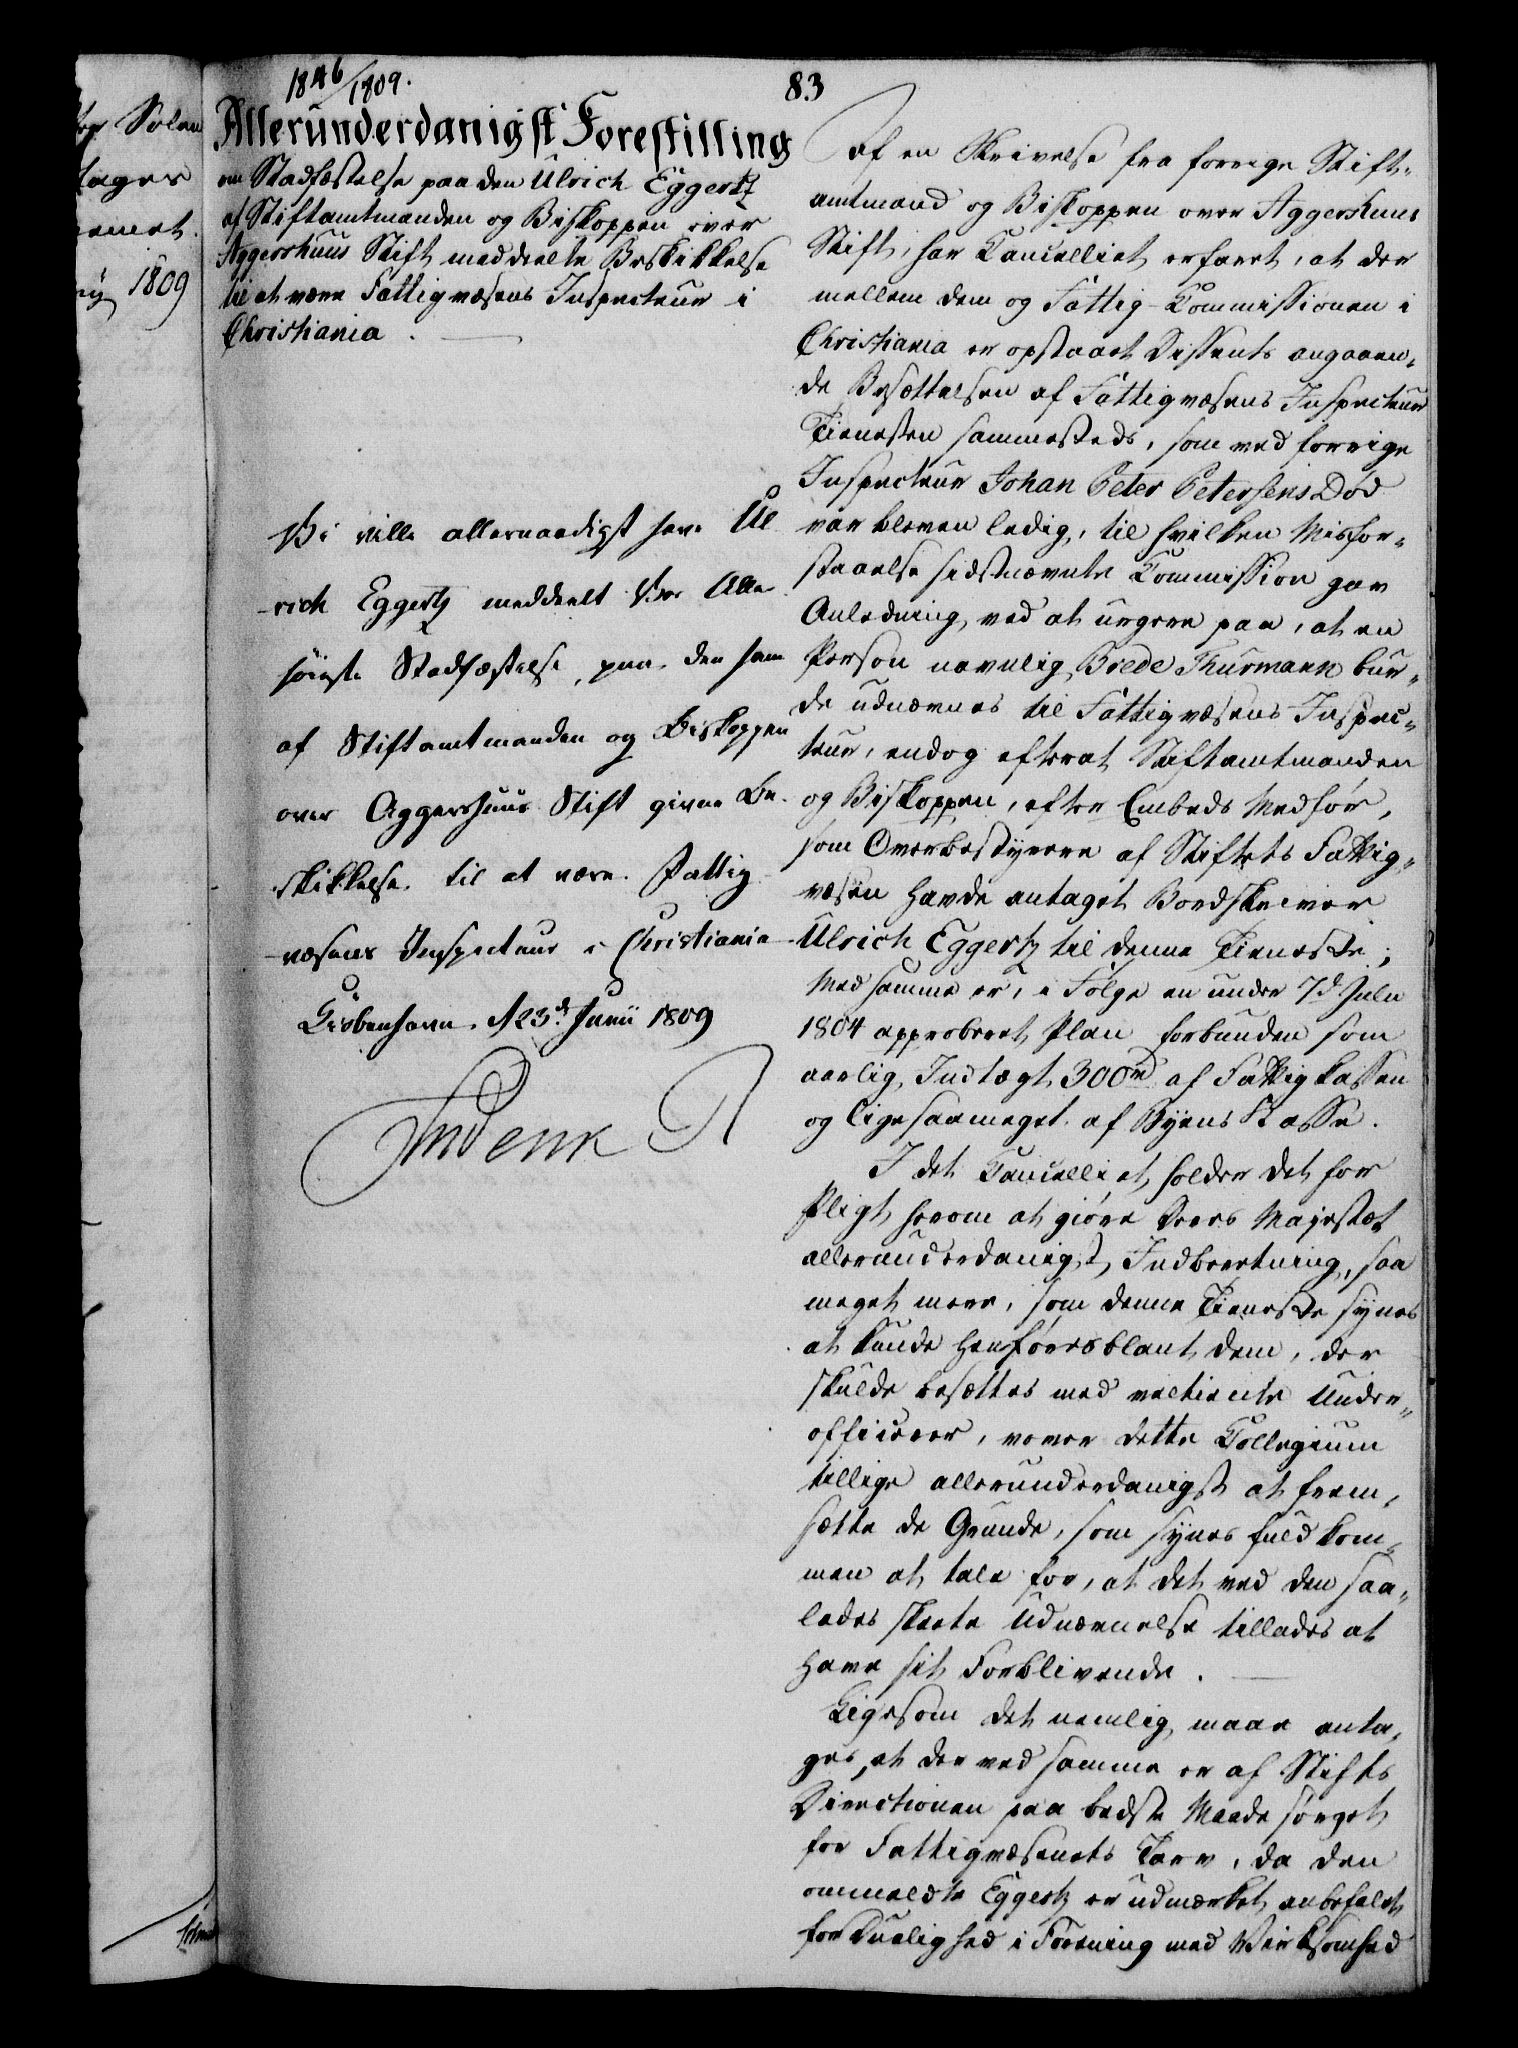 1846/1809.
83
Allerunderdanigst Forestilling
om Stadfæstelse paa den Ulrich Eggertz
af Stiftamtmanden og Biskoppen over
Aggershuus Stift meddeelte Beskikkelse
til at være Fattigvæsens Inspecteur i
Christiania.
Vi ville allernaadigst have Ul
rich Eggertz meddeelt Vor Aller
høieste Stadfæstelse paa den ham
af Stiftamtmanden og Biskoppen
over Aggershuus Stift givne Be
skikkelse til at være Fattig
væsens Inspecteur i Christiania
Kiøbenhavn d 23d Junii 1809
Frederik R
Af en Skrivelse fra forrige Stift-
amtmand og Biskoppen over Aggershuus
Stift, har Cancelliet erfaret, at der
mellem dem og Fattig-Commissionen i
Christiania er opstaaet Dissents angaaen-
de Besættelsen af Fattigvæsens Inspecteur
Tienesten sammesteds, som ved forrige
Inspecteur Johan Peter Petersens Død
var bleven ledig, til hvilken Misfor-
staaelse sidstnævnte Commission gav
Anledning, ved at urgere paa, at en
Person navnlig Brede Thurmann bur-
de udnævnes til Fattigvæsens-Inspec-
teur, endog efterat Stiftamtmanden
og Biskoppen, efter Embeds Medfør,
som Overbestyrere af Stiftets Fattig-
væsen havde antaget Bordskriver
Ulrich Eggertz til denne Tieneste;
Med samme er, i Følge en under 7d Julii
1804 approberet Plan forbunden som
aarlig Indtægt 300 rd af Fattigkassen
og ligesaameget af Byens Kasse.
I det Cancelliet, holder det for
Pligt herom at giøre Deres Majestæt
allerunderdanigst Indberetning, saa
meget mere, som denne Tieneste synes
at kunde henføres blant dem, der
skulde besættes med veltiente Under-
officerer, vover dette Collegium
tillige allerunderdanigst at frem-
sætte de Grunde, som synes fuldkom-
men at tale for, at det ved den saa-
ledes skeete Udnævnelse tillades at
have sit Forblivende.
Ligesom det nemlig maae anta-
ges, at der ved samme er af Stifts
Directionen paa bedste Maade sørget
for Fattigvæsenets Tarv, da den
ommeldte Eggertz er udmærket anbefalet
for Duelighed i Forening med Virksomhed
1809